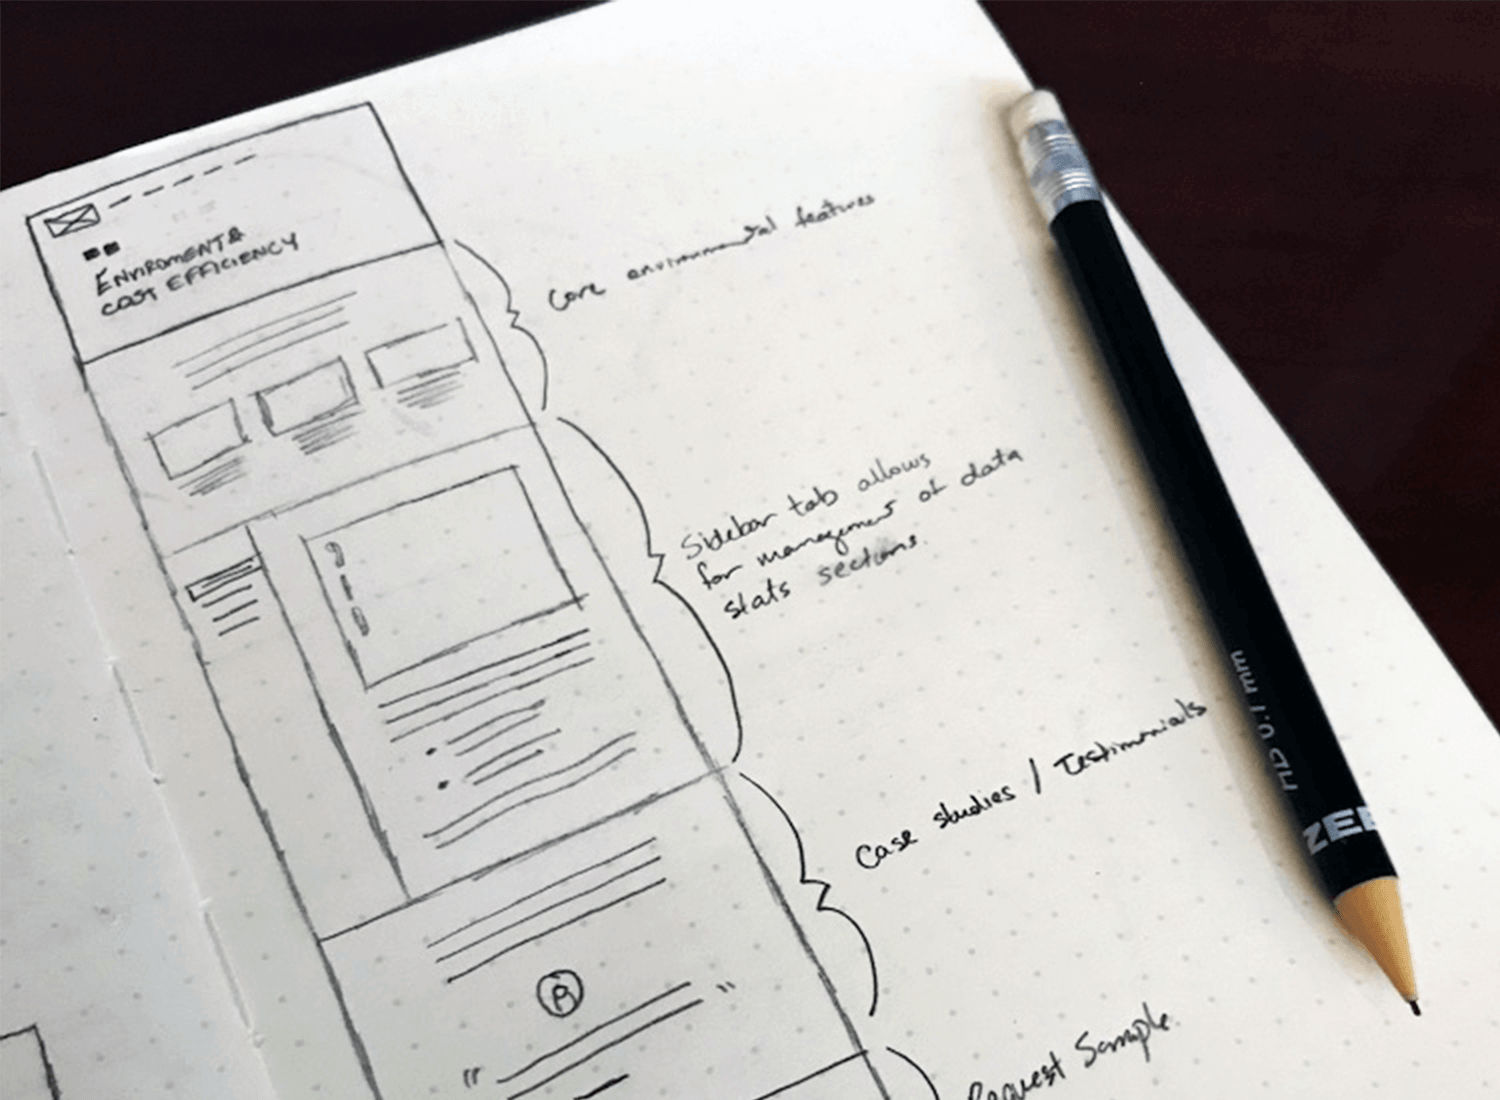 ENVIROMENT &
COST EFFICIENCY
Core environmental features
Sidebar tab allows
for management of data
stats sections.
Case studies / Testimonials
Request Sample.
MD 0.7 mm
ZEB